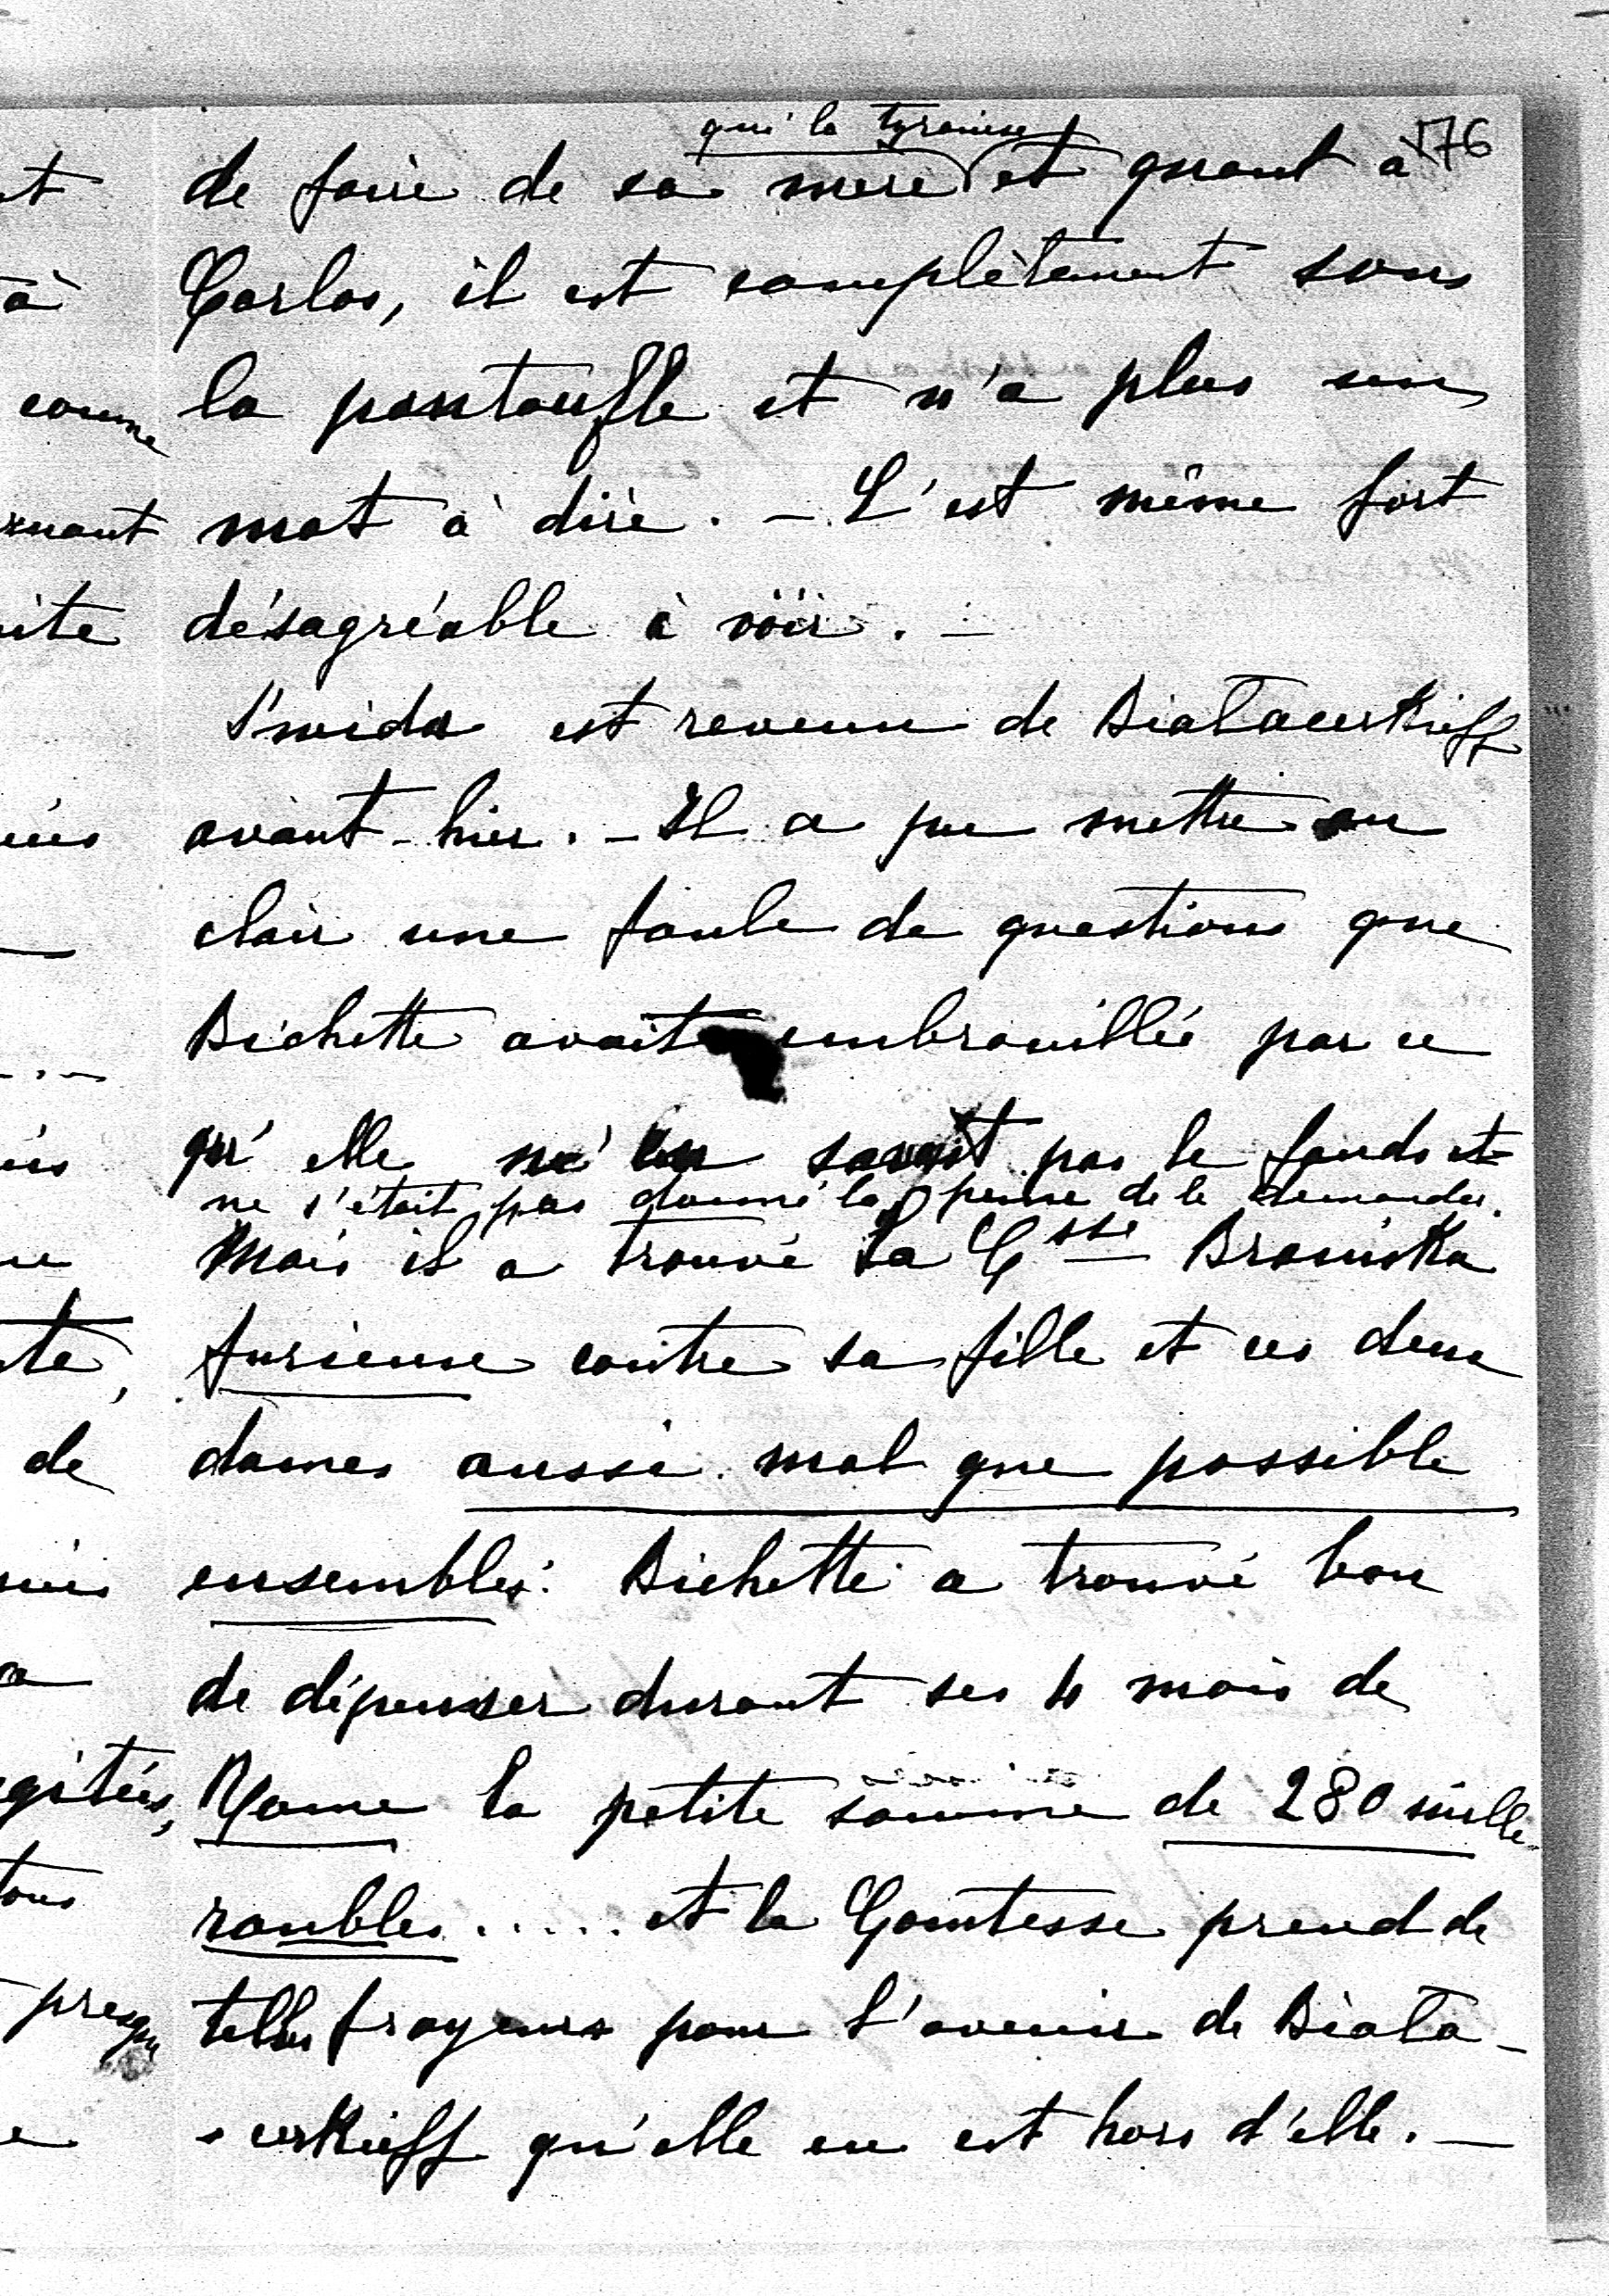 176
qui la tyranise
de faire de sa mère et quant à
Carlos, il est complètement sous
la pantoufle et n'a plus un
mot à dire. – C'est même fort
désagréable à voir. –
S'mida est revenu de Biatacerkieff
avant-hier. – Il a pu mettre au
clair une foule de questions que
Bichette avait embrouillée par ce
qu'elle n'en savait pas le fonds et
ne s'était pas donné la peine de le demander.
Mais il a trouvé la Csse Braniska
furieuse contre sa fille et ces deux
dames aussi mal que possible
ensembles. Bichette a trouvé bon
de dépenser durant ses 4 mois de
Rome la petite somme de 280 mille
roubles ..... et la Comtesse prend de
telles frayeurs pour l'avenir de Biata-
cerkieff qu'elle en est hors d'elle. –
nt
à
comme
ite
te,
de
gitées,
tous
presqu